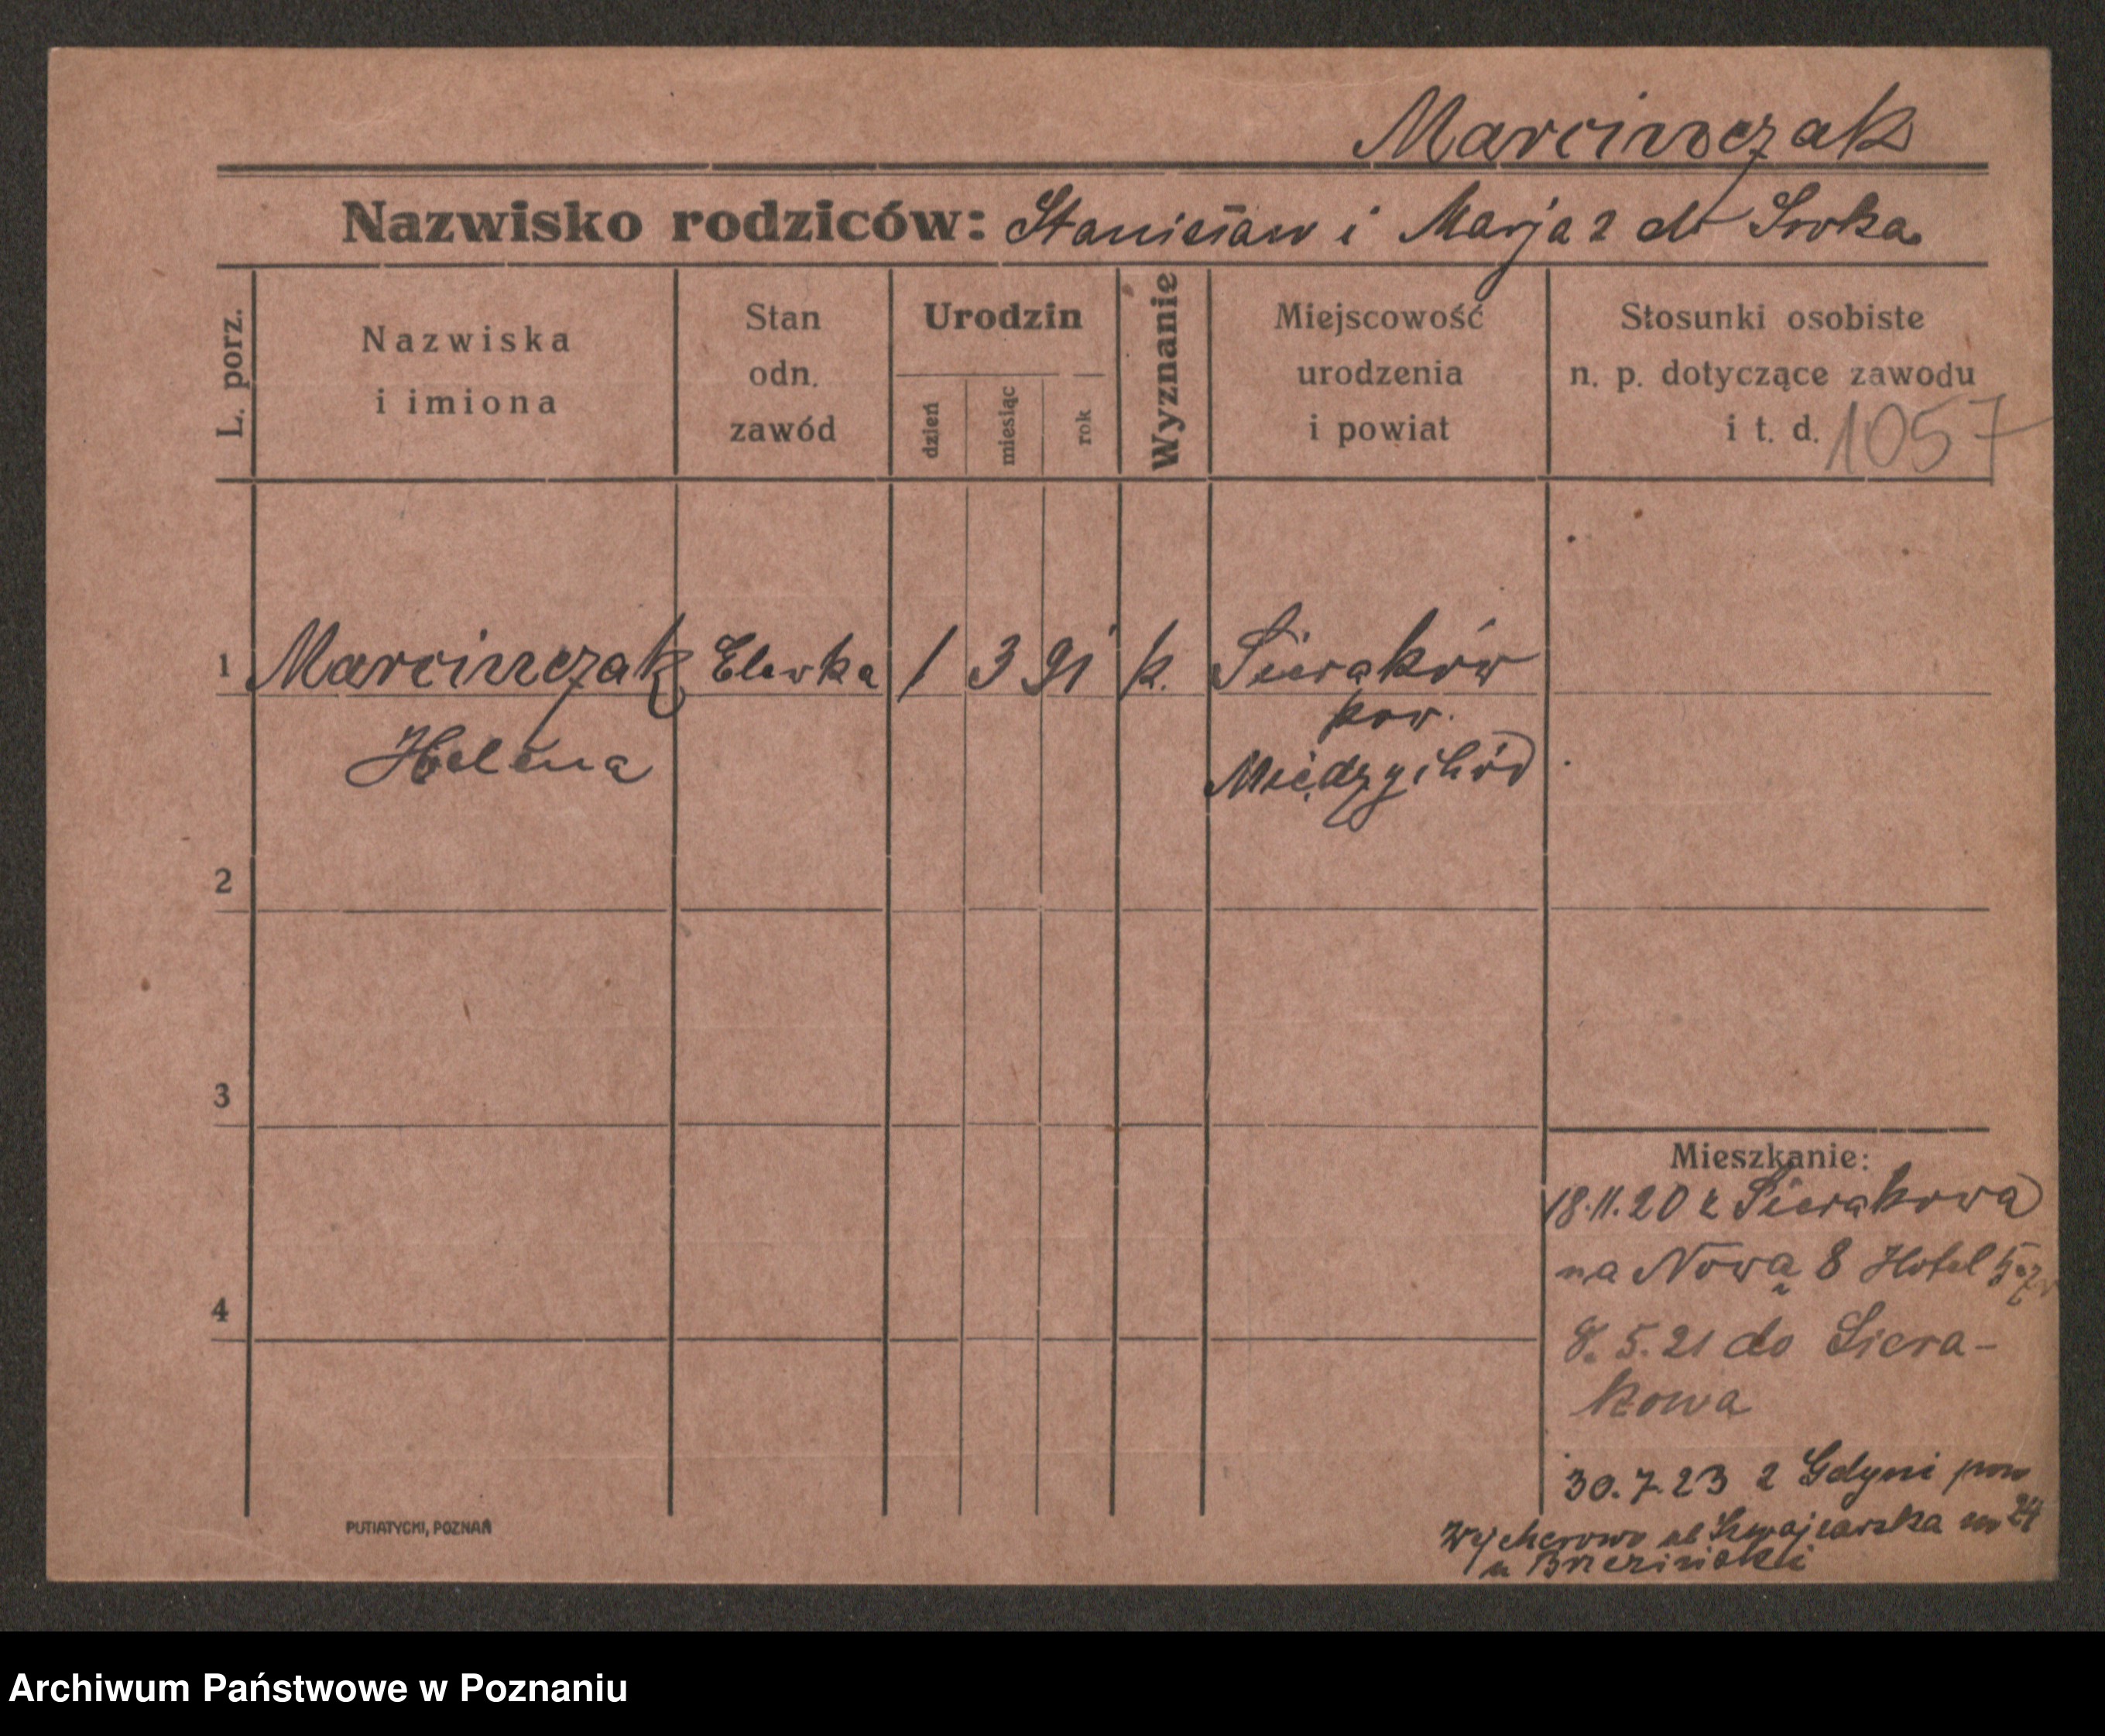 Marcinczak
Nazwisko rodziców: Stanisław i Marja z d. Sroka
L. porz.
Nazwiska
i imiona
Stan
odn.
zawód
Urodzin
dzień
miesiąc
rok
Wyznanie
Miejscowość
urodzenia
i powiat
Stosunki osobiste
n. p. dotyczące zawodu
i t. d. 1057
1 Marcinczak Elewka 1 3 91 k. Sieraków
pow.
Helena Międzychód
2
3
4
Mieszkanie:
18.11.20 z Sierakowa
na Nową 8 Hotel
8.5.21 do Siera-
kowa
30.7.23 z Gdyni pow
Wejherowo ul Szwajcarska 24
u Brzezinski
PUTIATYCKI, POZNAŃ
Archiwum Państwowe w Poznaniu